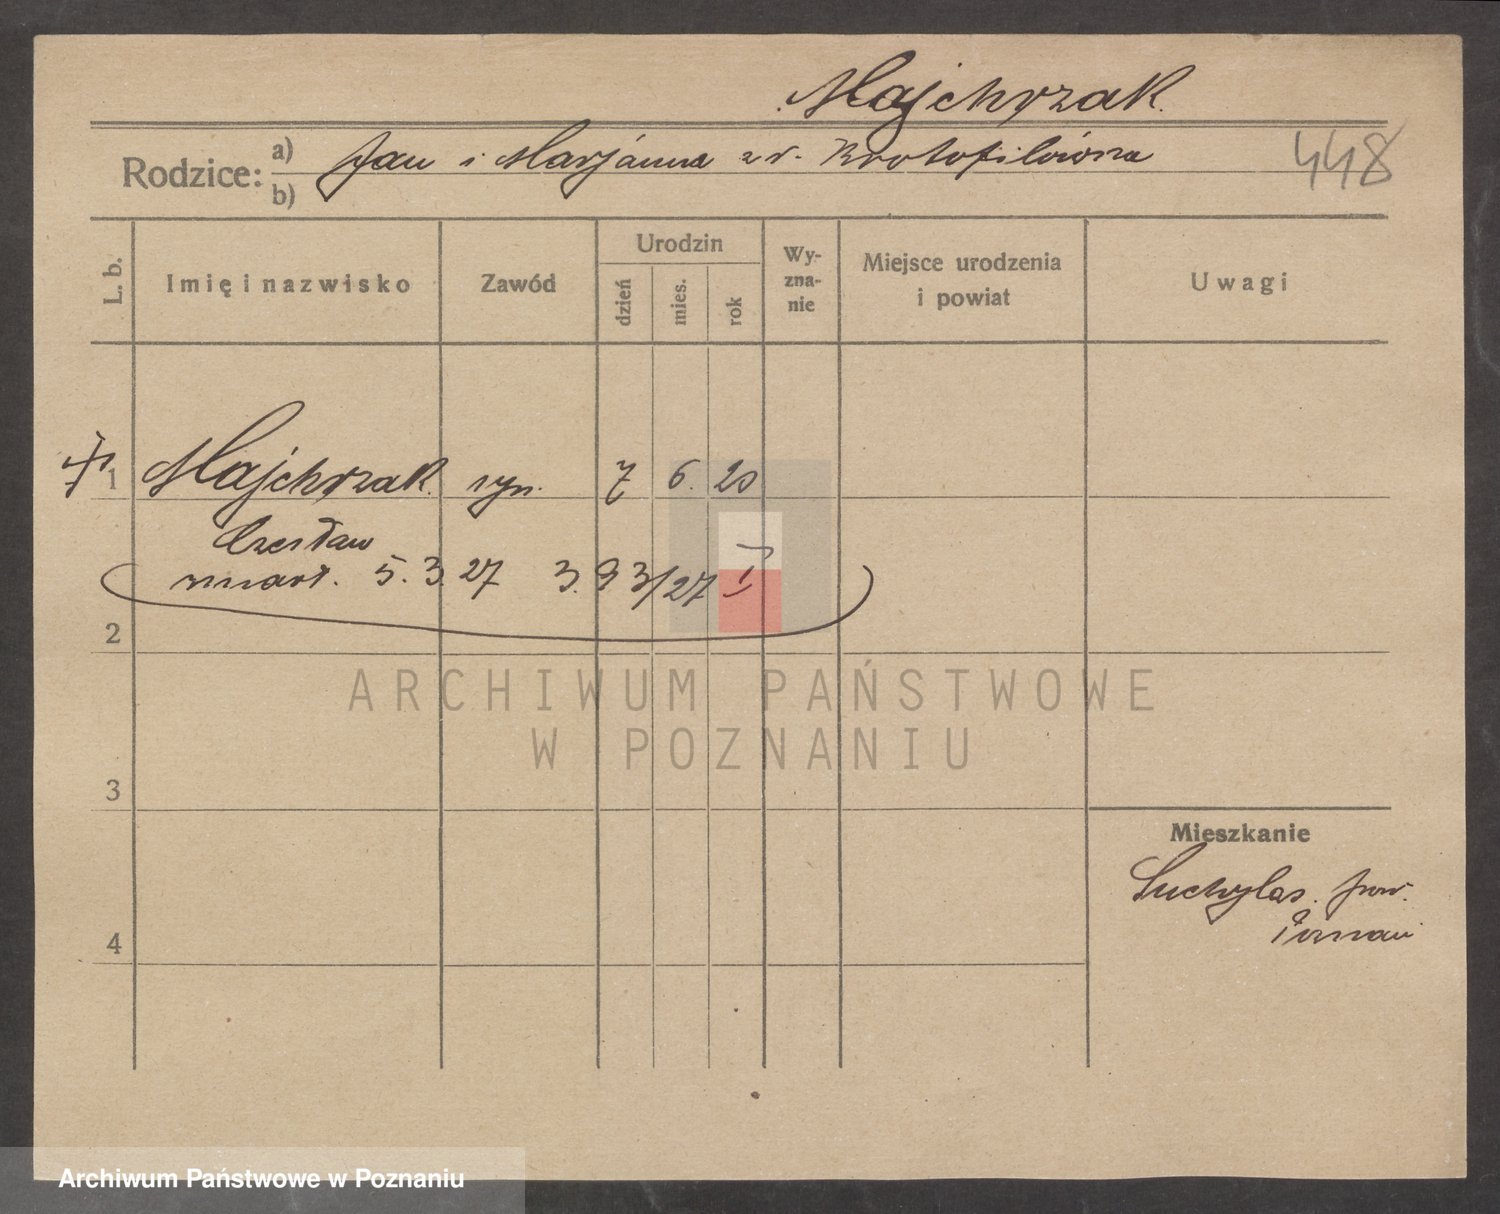 Majchrzak
Rodzice: a) Jan i Marjanna z d. Krotofilówna
b)
448
L. b.
Imię i nazwisko
Zawód
Urodzin
dzień
mies.
rok
Wy-
zna-
nie
Miejsce urodzenia
i powiat
Uwagi
1 Majchrzak syn. 7 6. 20
Czesław
zmarł. 5. 3. 27 3. 93/27 I
2
ARCHIWUM PAŃSTWOWE
W POZNANIU
3
Mieszkanie
Suchylas. pow.
Poznań
4
Archiwum Państwowe w Poznaniu